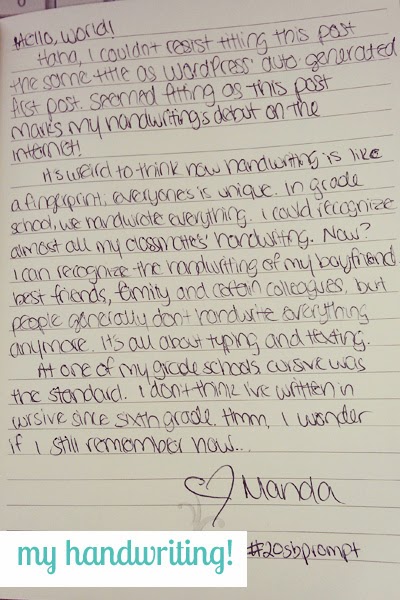 Hello, world!
Haha, I couldn't resist titling this post
the same title as WordPress' auto-generated
first post. Seemed fitting as this post
marks my handwriting's debut on the
internet!
It's weird to think how handwriting is like
a fingerprint; everyone's is unique. In grade
school, we handwrote everything. I could recognize
almost all my classmates' handwriting. Now?
I can recognize the handwriting of my boyfriend
best friends, family and certain colleagues, but
people generally don't handwrite everything
anymore. It's all about typing and texting.
At one of my grade schools cursive was
the standard. I don't think I've written in
cursive since sixth grade. Hmm, I wonder
if I still remember how...
Manda
my handwriting!
#20sbprompt